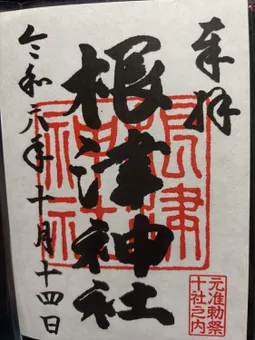 奉拝
根津神社
令和元年十月十四日
根津神社
元准勅祭
十社之内